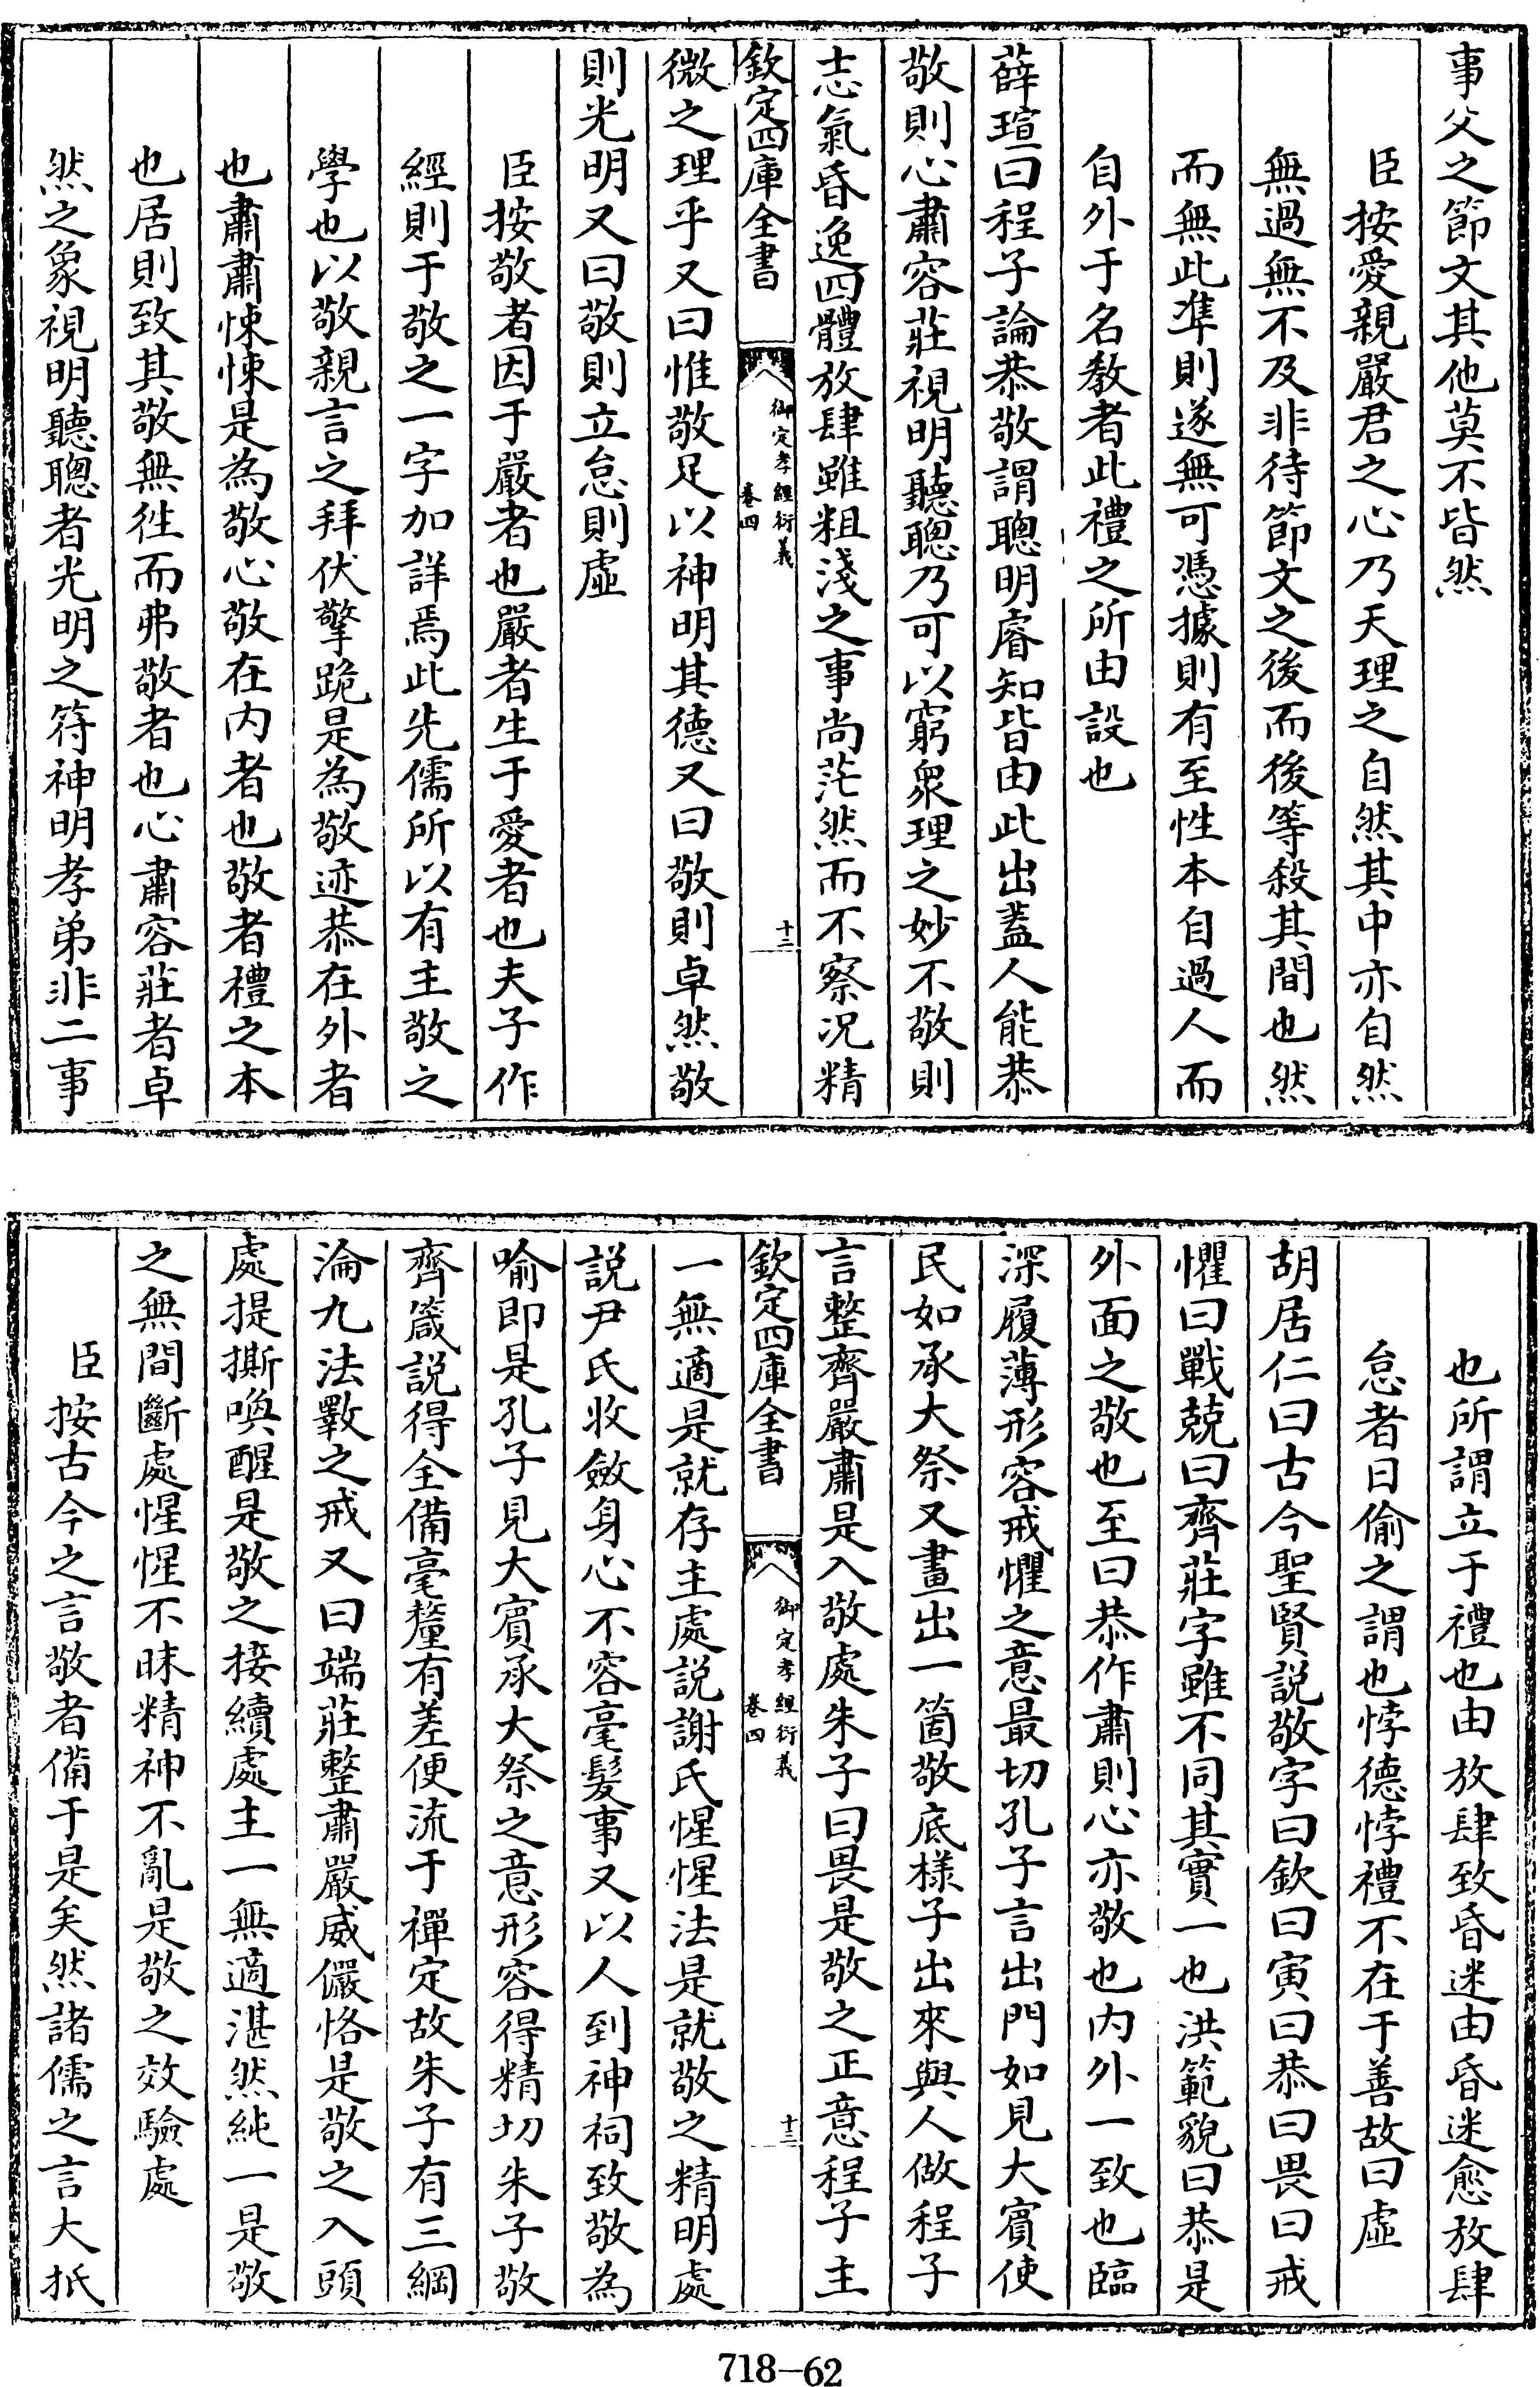 事父之節文其他莫不皆然
臣按愛親嚴君之心乃天理之自然其中亦自然
無過無不及非待節文之後而後等殺其間也然
而無此準則遂無可憑據則有至性本自過人而
自外于名教者此禮之所由設也
薛瑄曰程子論恭敬謂聰明睿知皆由此出蓋人能恭
敬則心肅容莊視明聽聰乃可以窮衆理之妙不敬則
志氣昏逸四體放肆雖粗淺之事尚茫然而不察况精
欽定四庫全書
御定孝經衍義
卷四
十二
微之理乎又曰惟敬足以神明其德又曰敬則卓然敬
則光明又曰敬則立怠則虛
臣按敬者因于嚴者也嚴者生于愛者也夫子作
經則于敬之一字加詳焉此先儒所以有主敬之
學也以敬親言之拜伏擎跪是為敬迹恭在外者
也肅肅悚悚是為敬心敬在内者也敬者禮之本
也居則致其敬無徃而弗敬者也心肅容莊者卓
然之象視明聽聰者光明之符神明孝弟非二事
也所謂立于禮也由放肆致昏迷由昏迷愈放肆
怠者日偷之謂也悖德悖禮不在于善故曰虛
胡居仁曰古今聖賢説敬字曰欽曰寅曰恭曰畏曰戒
懼曰戰兢曰齊莊字雖不同其實一也洪範貌曰恭是
外面之敬也至曰恭作肅則心亦敬也内外一致也臨
深履薄形容戒懼之意最切孔子言出門如見大賓使
民如承大祭又畫出一箇敬底樣子出來與人做程子
言整齊嚴肅是入敬處朱子曰畏是敬之正意程子主
欽定四庫全書
御定孝經衍義
卷四
十三
一無適是就存主處説謝氏惺惺法是就敬之精明處
説尹氏收斂身心不容毫髮事又以人到神祠致敬為
喻即是孔子見大賓承大祭之意形容得精切朱子敬
齊箴説得全備毫釐有差便流于禪定故朱子有三綱
淪九法斁之戒又曰端莊整肅嚴威儼恪是敬之入頭
處提撕喚醒是敬之接續處主一無適湛然純一是敬
之無間斷處惺惺不昧精神不亂是敬之效驗處
臣按古今之言敬者備于是矣然諸儒之言大抵
718-62